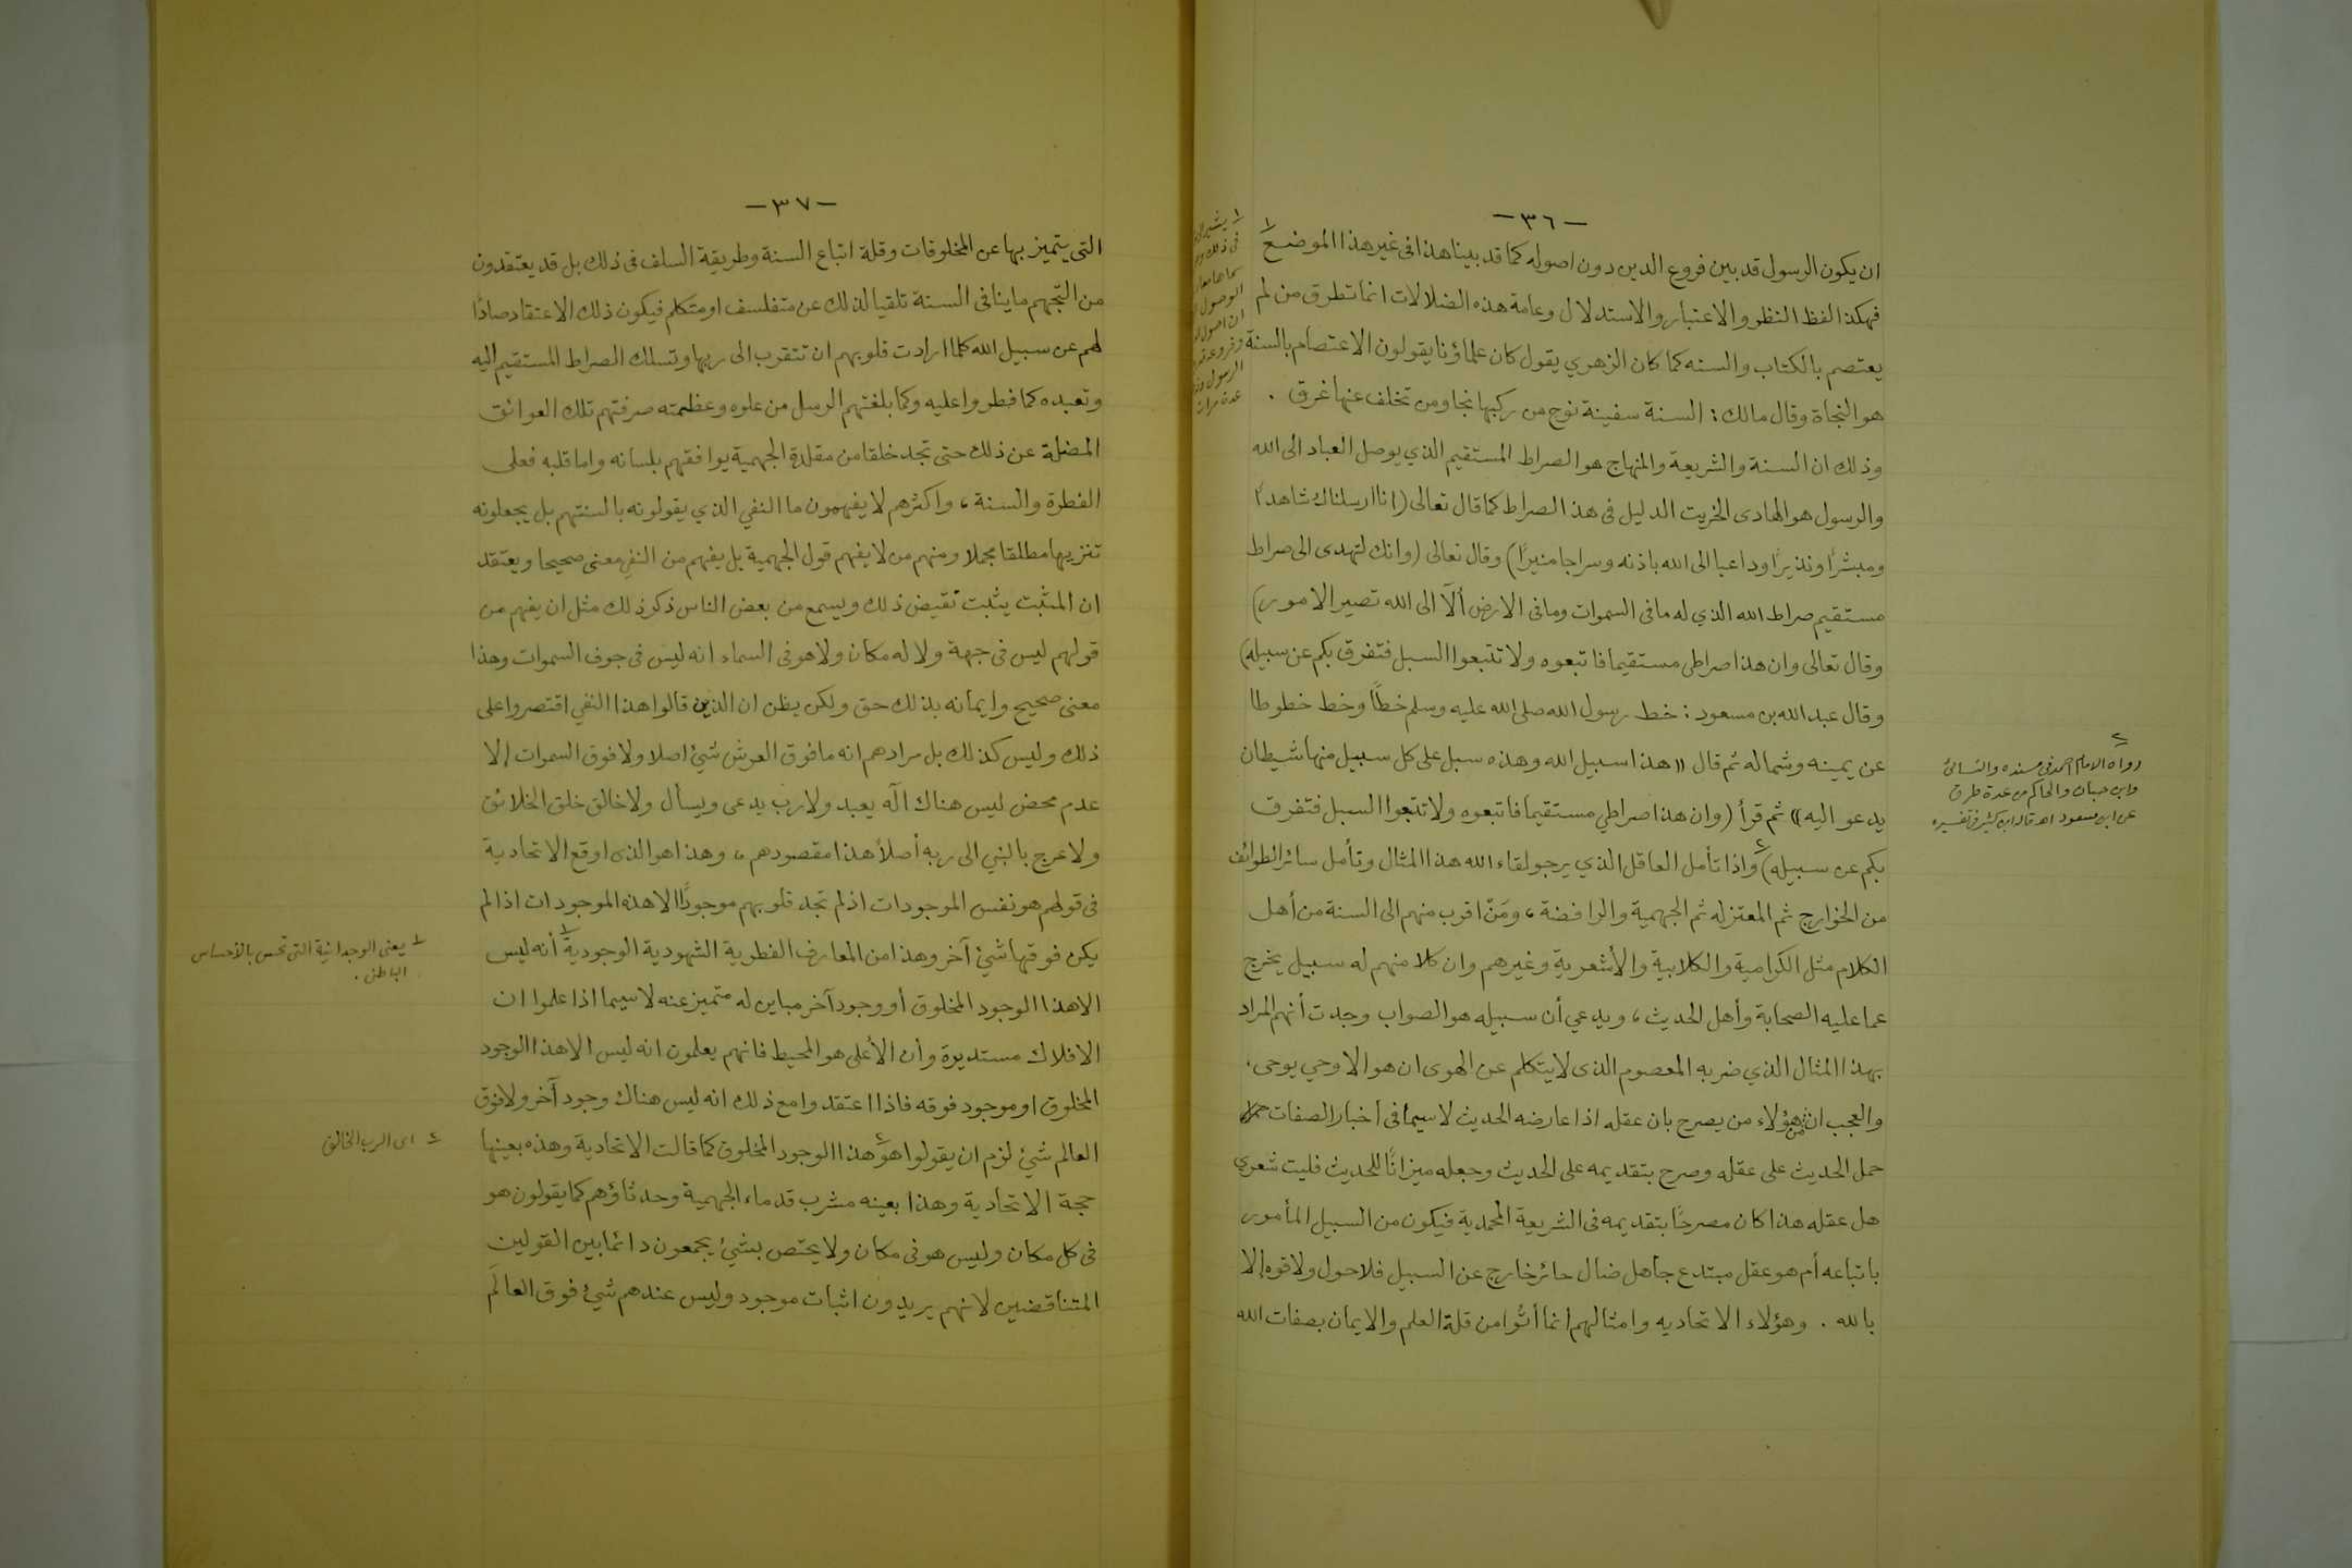 — ٣٦ —
ان يكون الرسول قد بين فروع الدين دون اصوله كما قد بينا هذا فى غير هذا الموضع ١
فهكذا لفظ النظر والاعتبار والاستدلال وعامة هذه الضلالات انما تطرق من لم
يعتصم بالكتاب والسنه كما كان الزهري يقول كان علماؤنا يقولون الاعتصام بالسنة
هو النجاة وقال مالك : السنة سفينة نوح من ركبها نجا ومن تخلف عنها غرق .
وذلك ان السنة والشريعة والمنهاج هو الصراط المستقيم الذي يوصل العباد الى الله
والرسول هو الهادى الخريت الدليل فى هذا الصراط كما قال تعالى (انا ارسلناك شاهدًا
ومبشرًا ونذيرًا وداعيا الى الله باذنه وسراجا منيرًا) وقال تعالى (وانك لتهدى الى صراط
مستقيم صراط الله الذي له ما فى السموات وما فى الارض ألآ الى الله تصير الامور)
وقال تعالى وان هذا صراطى مستقيما فاتبعوه ولا تتبعوا السبل فتفرق بكم عن سبيله)
وقال عبد الله بن مسعود : خط رسول الله صلى الله عليه وسلم خطًا وخط خطوطا
عن يمينه وشماله ثم قال «هذا سبيل الله وهذه سبل على كل سبيل منها شيطان
يدعو اليه» ثم قرأ (وان هذا صراطي مستقيما فاتبعوه ولا تتبعوا السبل فتفرق
بكم عن سبيله) ٢ واذا تأمل العاقل الذي يرجو لقاء الله هذا المثال وتأمل سائر الطوائف
من الخوارج ثم المعتزله ثم الجهمية والرافضة ، ومَنْ اقرب منهم الى السنة من أهل
الكلام مثل الكرامية والكلابية والأشعرية وغيرهم وان كلا منهم له سبيل يخرج
عما عليه الصحابة وأهل الحديث ، ويدعي أن سبيله هو الصواب وجدت أنهم المراد
بهذا المثال الذي ضربه المعصوم الذى لا يتكلم عن الهوى ان هو الا وحي يوحى .
والعجب ان من هؤلاء من يصرح بان عقله اذا عارضه الحديث لا سيما فى أخبار الصفات
حمل الحديث على عقله وصرح بتقديمه على الحديث وجعله ميزانًا للحديث فليت شعرى
هل عقله هذا كان مصرحًا بتقديمه فى الشريعة المحمدية فيكون من السبيل المأمور
باتباعه أم هو عقل مبتدع جاهل ضال حائر خارج عن السبيل فلا حول ولا قوه إلا
بالله . وهؤلاء الاتحاديه وامثالهم انما أتُوا من قلة العلم والايمان بصفات الله
٢
رواه الامام احمد فى مسنده والنسائى
وابن حبان والحاكم من عدة طرق
عن ابن مسعود اهـ قاله ابن كثير فى تفسيره
١ يشير
فى ذلك
سماها
الوصول
ان اصول
وفروعه
الرسول
عدة مرات
— ٣٧ —
التى يتميز بها عن المخلوقات وقلة اتباع السنة وطريقة السلف فى ذلك بل قد يعتقدون
من التّجهم ما ينافى السنة تلقيا لذلك عن متفلسف او متكلم فيكون ذلك الاعتقاد صادًا
لهم عن سبيل الله كلما ارادت قلوبهم ان تتقرب الى ربها وتسلك الصراط المستقيم اليه
وتعبده كما فطروا عليه وكما بلغتهم الرسل من علوه وعظمته صرفتهم تلك العوائق
المضلة عن ذلك حتى تجد خلقا من مقلدة الجهمية يوافقهم بلسانه واما قلبه فعلى
الفطرة والسنة ، واكثرهم لا يفهمون ما النفي الذي يقولونه بالسنتهم بل يجعلونه
تنزيها مطلقا مجملا ومنهم من لا يفهم قول الجهمية بل يفهم من النفي معنى صحيحا ويعتقد
ان المثبت يثبت نقيض ذلك ويسمع من بعض الناس ذكر ذلك مثل ان يفهم من
قولهم ليس فى جهة ولا له مكان ولا هو فى السماء انه ليس فى جوف السموات وهذا
معنى صحيح وايمانه بذلك حق ولكن يظن ان الذين قالوا هذا النفي اقتصروا على
ذلك وليس كذلك بل مرادهم انه ما فوق العرش شيئ اصلا ولا فوق السموات إلا
عدم محض ليس هناك آله يعبد ولا رب يدعى ويسأل ولا خالق خلق الخلائق
ولا عرج بالنبي الى ربه أصلاً هذا مقصودهم ، وهذا هو الذى اوقع الاتحادية
فى قولهم هو نفس الموجودات اذ لم تجد قلوبهم موجودًا الا هذه الموجودات اذا لم
يكن فوقها شيئ آخر وهذا من المعارف الفطرية الشهودية الوجودية ١ أنه ليس
الا هذا الوجود المخلوق أو وجود آخر مباين له متميز عنه لا سيما اذا علموا ان
الافلاك مستديرة وأن الأعلى هو المحيط فانهم يعلمون انه ليس الا هذا الوجود
المخلوق او موجود فوقه فاذا اعتقدوا مع ذلك انه ليس هناك وجود آخر ولا فوق
العالم شيئ لزم ان يقولوا هو ٢ هذا الوجود المخلوق كما قالت الاتحادية وهذه بعينها
حجة الاتحادية وهذا بعينه مشرب قدماء الجهمية وحدثاؤهم كما يقولون هو
فى كل مكان وليس هو فى مكان ولا يختص بشيئ يجمعون دائما بين القولين
المتناقضين لانهم يريدون اثبات موجود وليس عندهم شيئ فوق العالَم
١ يعنى الوجدانية التى تحس بالاحساس
الباطن .
٢ اى الرب الخالق